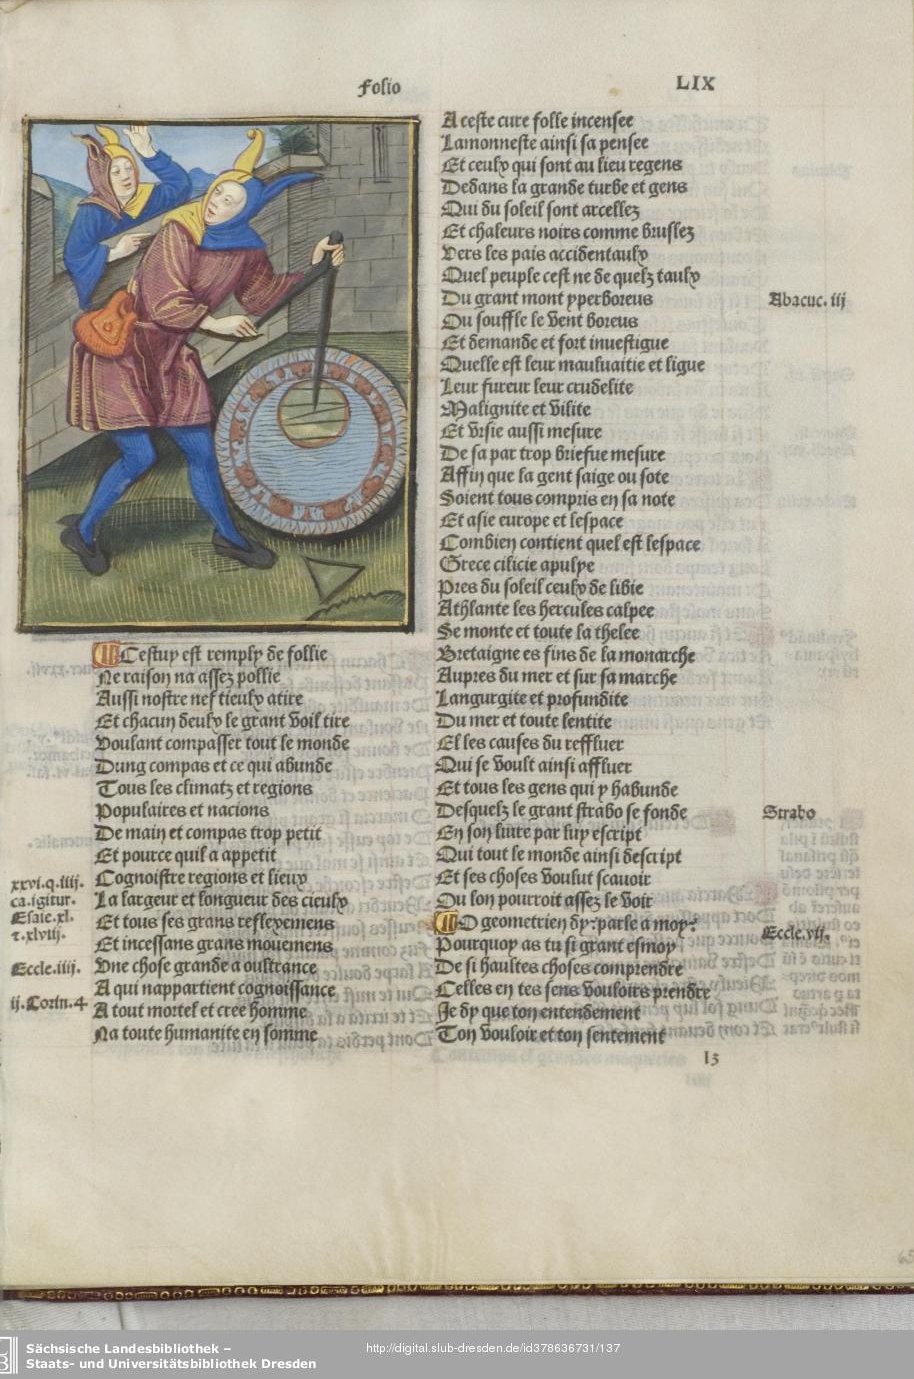 Folio
LIX
Cestuy est remply de follie
Ne raison na assez pollie
Aussi nostre nef tieulx atire
Et chacun deulx le grant voil tire
Voulant compasser tout le monde
Dung compas et ce qui abunde
Tous les climatz et regions
Populaires et nacions
De main et compas trop petit
Et pource quil a appetit
Cognoistre regions et lieux
La largeur et longueur des cieulx
Et tous ses grans reflexemens
Et incessans grans mouemens
Une chose grande a oultrance
A qui nappartient cognoissance
A tout mortel et cree homme
Na toute humanite en somme
xxvi.q.iiii.
ca.igitur.
Esaie.xl.
τ.xlviij.
Eccle.iiii.
ii.Corin.4
A ceste cure folle incensee
Lamonneste ainsi sa pensee
Et ceulx qui sont au lieu regens
Dedans la grande turbe et gens
Qui du soleil sont arcellez
Et chaleurs noirs comme bruslez
Vers les pais accidentaulx
Quel peuple cest ne de quelz taulx
Du grant mont yperboreus
Ou souffle le vent boreus
Et demande et fort inuestigue
Quelle est leur mauluaitie et ligue
Leur fureur leur crudelite
Malignite et vilite
Et vrsie aussi mesure
De sa par trop briefue mesure
Affin que la gent saige ou sote
Soient tous compris en sa note
Et asie europe et lespace
Combien contient quel est lespace
Grece cilicie apulye
Pres du soleil ceulx de libie
Athlante les hercules calpee
Se monte et toute la thelee
Bretaigne es fins de la monarche
Aupres du mer et sur sa marche
Langurgite et profundite
Du mer et toute sentite
El les causes du reffluer
Qui se voult ainsi affluer
Et tous les gens qui y habunde
Desquelz le grant strabo se fonde
En son liure par luy escript
Qui tout le monde ainsi descript
Et ses choses voulut scauoir
Ou lon pourroit assez le voir
O geometrien dy: parle a moy:
Pourquoy as tu si grant esmoy
De si haultes choses comprendre
Celles en tes sens vouloirs prendre
Je dy que ton entendement
Ton vouloir et ton sentement
Abacuc.iij
Strabo
Eccle.vij.
l3
Sächsische Landesbibliothek –
Staats- und Universitätsbibliothek Dresden
http://digital.slub-dresden.de/id378636731/137